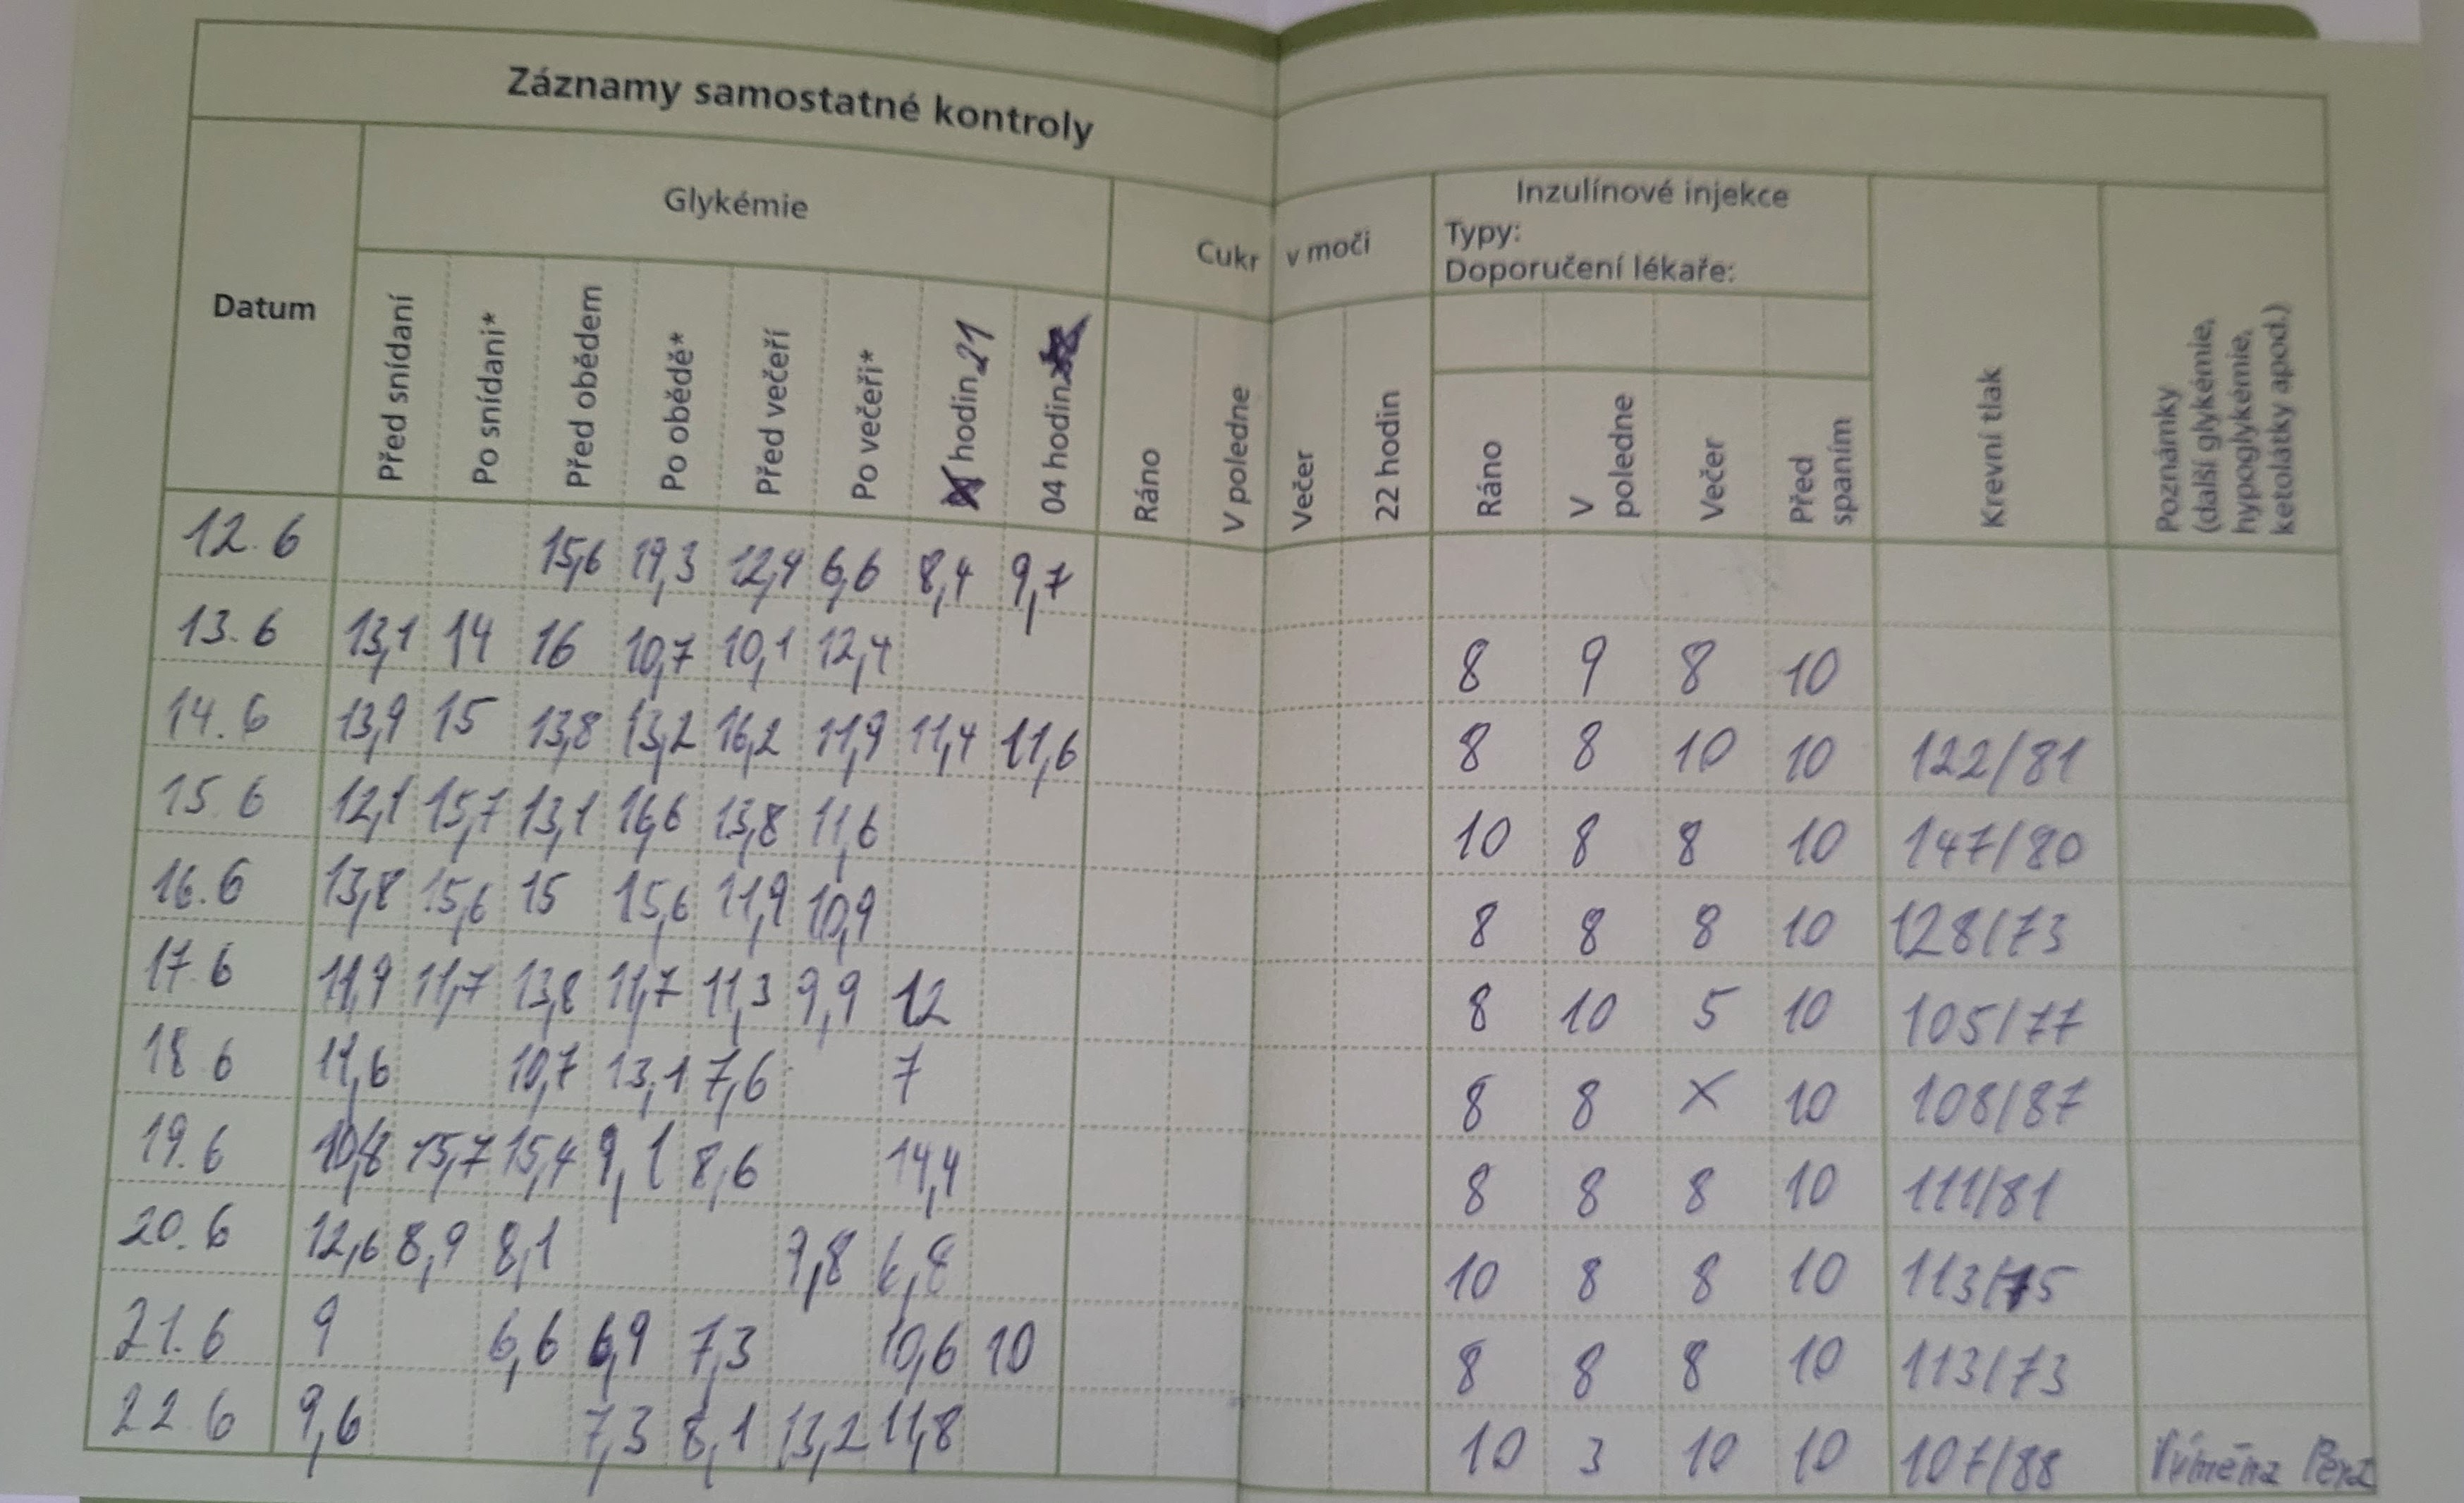 Záznamy samostatné kontroly
Datum
Glykémie
Cukr v moči
Inzulínové injekce
Typy:
Doporučení lékaře:
Krevní tlak
Poznámky
(další glykémie,
hypoglykémie,
ketolátky apod.)
Před snídaní
Po snídani*
Před obědem
Po obědě*
Před večeří
Po večeři*
hodin 21
04 hodin
Ráno
V poledne
Večer
22 hodin
Ráno
V
poledne
Večer
Před
spaním
12.6 15,6 19,3 12,4 6,6 8,4 9,7
13.6 13,1 14 16 10,7 10,1 12,4 8 9 8 10
14.6 13,9 15 13,8 13,2 16,2 11,9 11,4 11,6 8 8 10 10 122/81
15.6 12,1 15,7 13,1 16,6 13,8 11,6 10 8 8 10 147/80
16.6 13,8 15,6 15 15,6 11,9 10,9 8 8 8 10 128/73
17.6 11,9 11,7 13,8 11,7 11,3 9,9 12 8 10 5 10 105/77
18.6 11,6 10,7 13,1 7,6 7 8 8 X 10 108/87
19.6 10,8 15,7 15,4 9,1 8,6 14,4 8 8 8 10 111/81
20.6 12,6 8,9 8,1 9,8 6,8 10 8 8 10 113/75
21.6 9 6,6 6,9 7,3 10,6 10 8 8 8 10 113/73
22.6 9,6 7,3 8,1 13,2 11,8 10 3 10 10 107/88 Výměna Pera